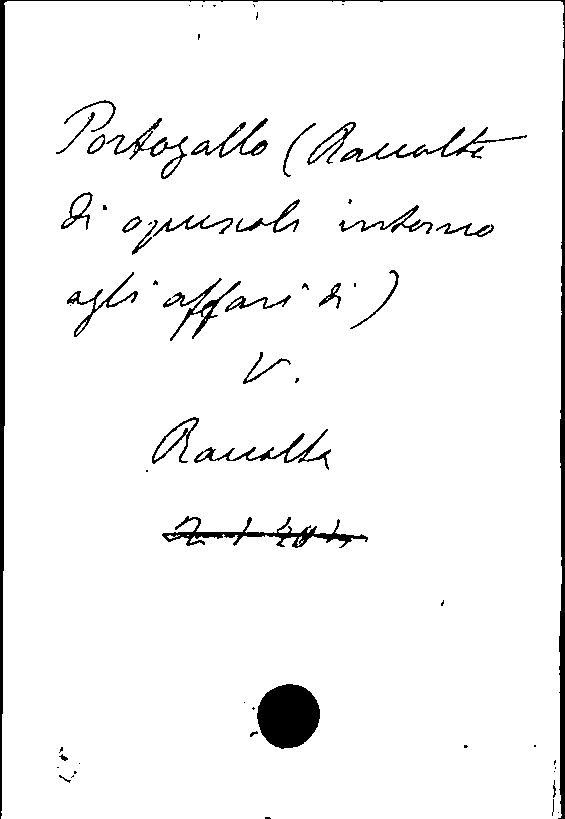 Portogallo (Raccolta
di opuscoli intorno
agli affari di)
V.
Raccolta